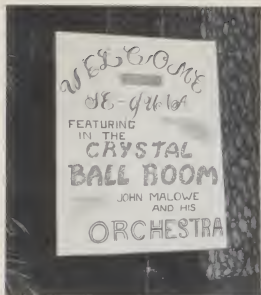 WELCOME
FEATURING
IN THE
CRYSTAL
BALL ROOM
JOHN MALOWE
AND HIS
ORCHESTRA